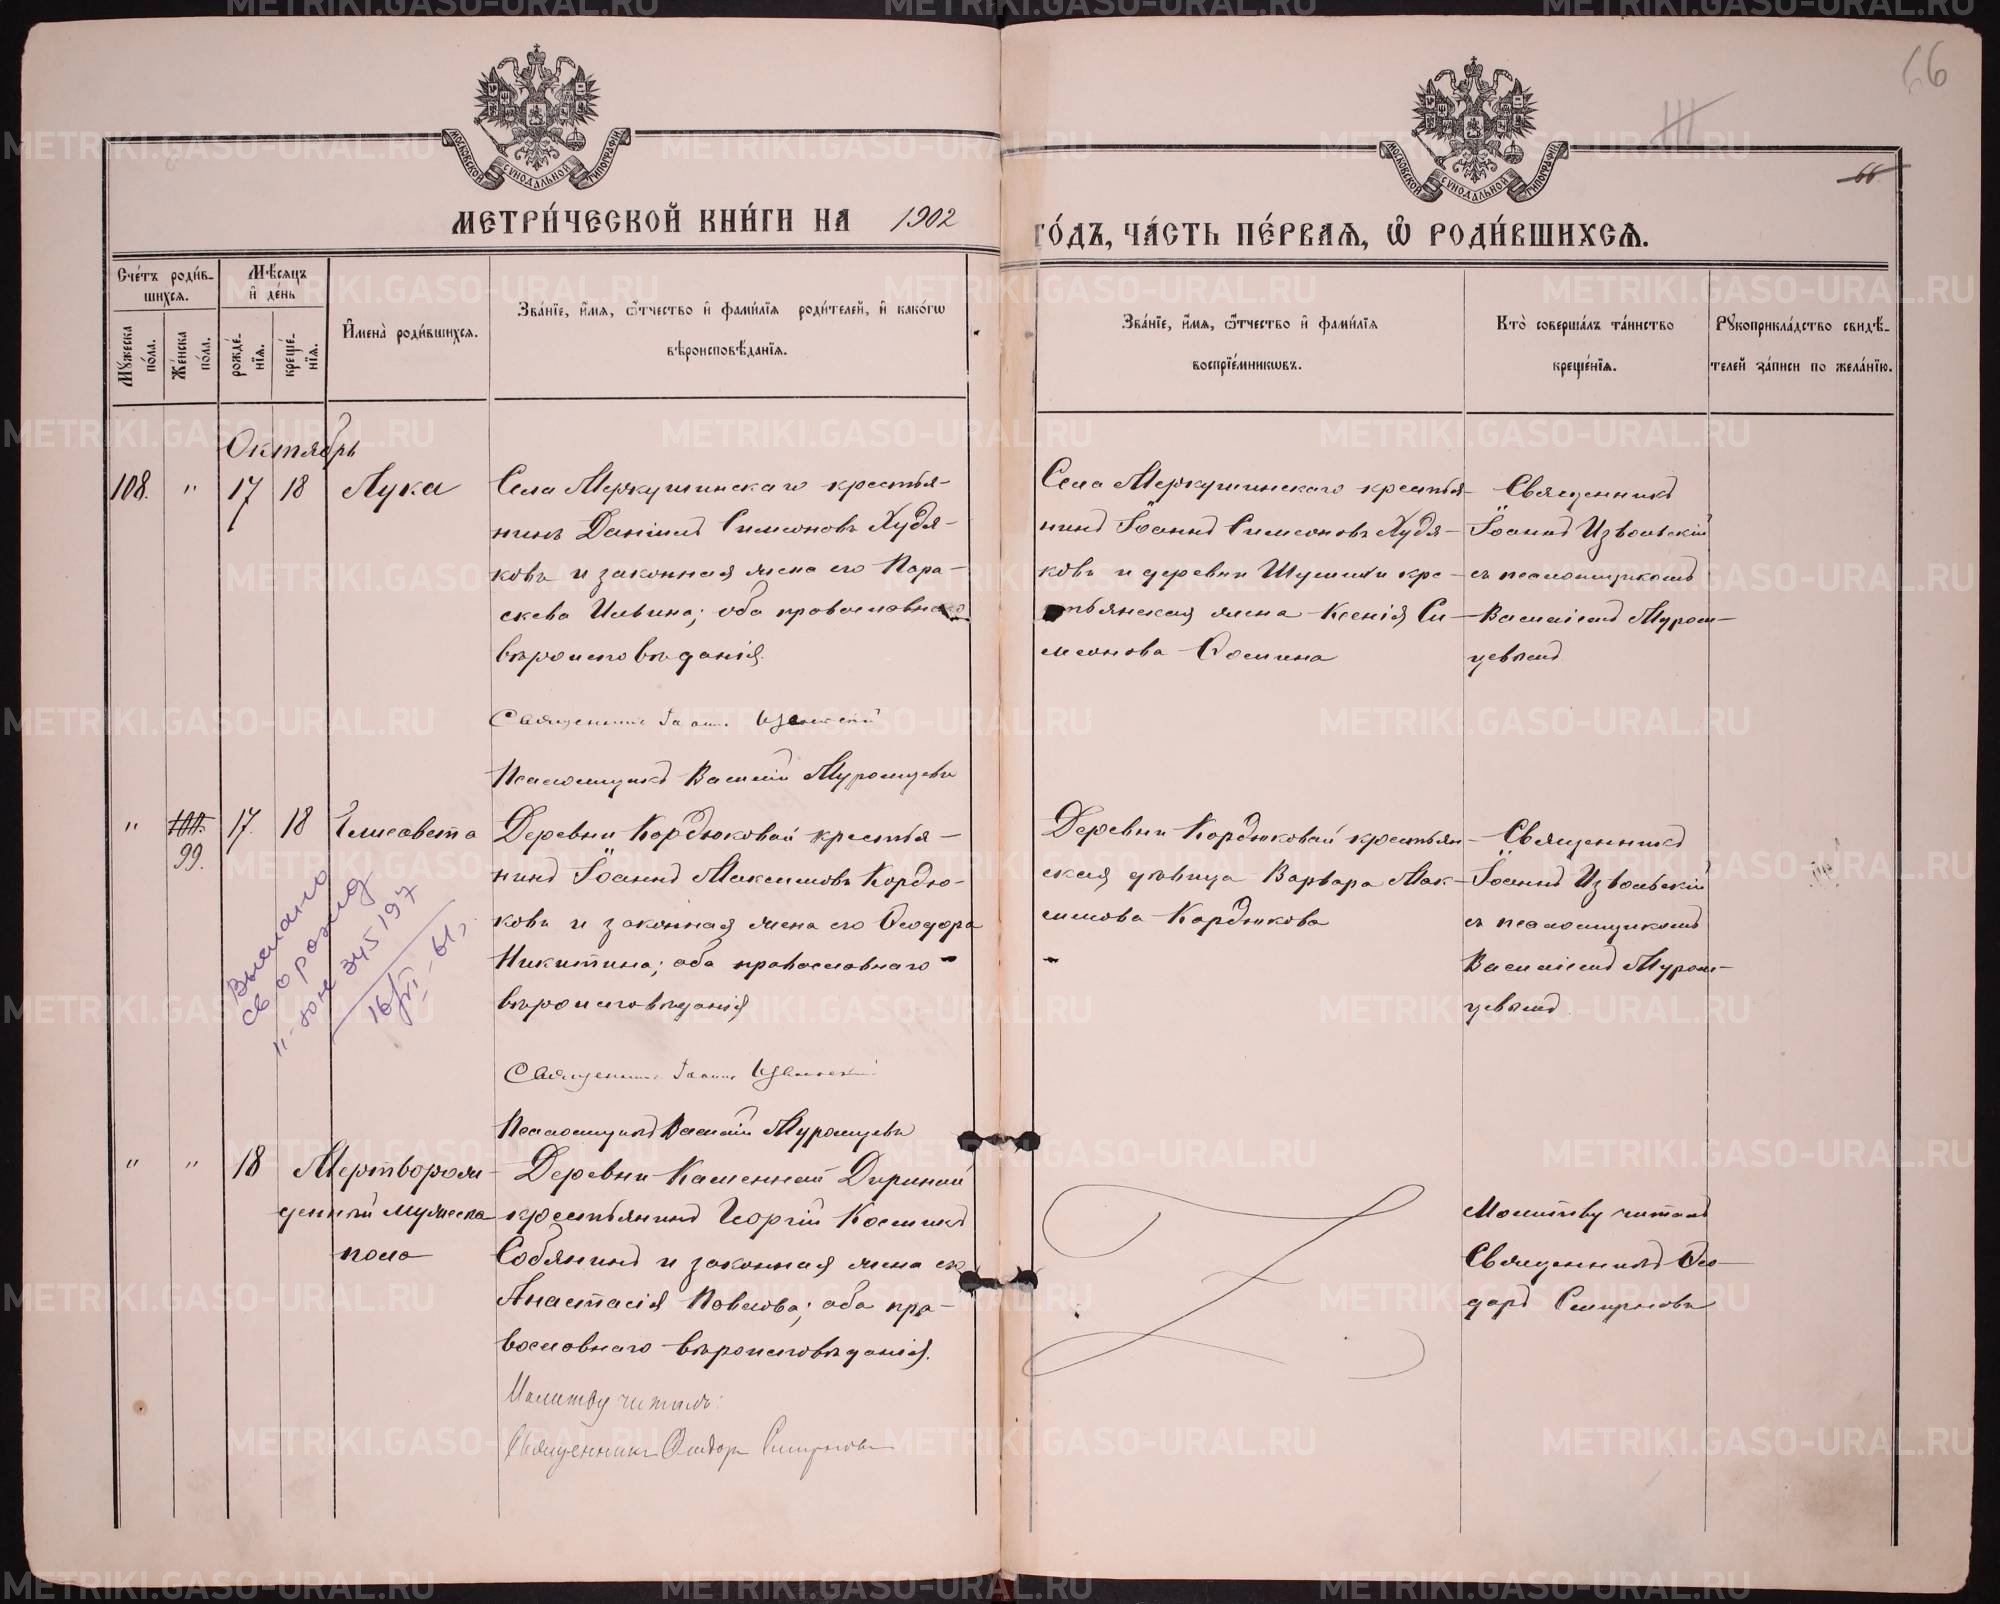 66
III
66
МОСКОВСКОЙ СѴНОДАЛЬНОЙ ТИПОГРАФІИ
МОСКОВСКОЙ СѴНОДАЛЬНОЙ ТИПОГРАФІИ
МЕТРИ́ЧЕСКОЙ КНИ́ГИ НА 1902 ГО́ДЪ, ЧА́СТЬ ПЕ́РВАЯ, Ѿ РОДИ́ВШИХСЯ.
Сче́тъ роди́в-
шихся.
Мꙋжеска по́ла.
Же́нска по́ла.
Мѣсяцъ
и де́нь
рожде́-
нія.
креще́-
нія.
Имена̀ роди́вшихся.
Зва́ніе, и́мя, ѻ҆́тчество и фами́лія роди́телей, и како́гѡ
вѣроисповѣ́данія.
Зва́ніе, и́мя, ѻ҆́тчество и фами́лія
воспріе́мникѡвъ.
Кто̀ соверша́лъ та́инство
креще́нія.
Рꙋкоприкла́дство свидѣ́-
телей за́писи по жела́нію.
Октябрь
108. " 17 18 Лука
Села Меркушинскаго крестья-
нинъ Даніилъ Симеоновъ Худя-
ковъ и законная жена его Пара-
скева Ильина; оба православнаго
вѣроисповѣданія.
Священникъ Іоаннъ Извольскій
Псаломщикъ Василій Муромцевъ
Села Меркушинскаго крестья-
нинъ Іоаннъ Симеоновъ Худя-
ковъ и деревни Шумихи кре-
стьянская жена Ксенія Си-
меонова Ѳомина
Священникъ
Іоаннъ Извольскій
съ псаломщикомъ
Василіемъ Муром-
цевымъ
" 100. 17. 18 Елисавета
99.
Деревни Кордюковой крестья-
нинъ Іоаннъ Максимовъ Кордю-
ковъ и законная жена его Ѳеодора
Никитина; оба православнаго
вѣроисповѣданія
Священникъ Іоаннъ Извольскій
Псаломщикъ Василій Муромцевъ
Деревни Кордюковой крестьян-
ская дѣвица Варвара Мак-
симова Кордюкова
Священникъ
Іоаннъ Извольскій
съ псаломщикомъ
Василіемъ Муром-
цевымъ.
Выслано
св о рожд
II-юн 345197
16/VI-61г
" " 18 Мертворож-
денный мужеска
пола
Деревни Каменной Дириной
крестьянинъ Георгій Косминъ
Собянинъ и законная жена его
Анастасія Павлова; оба пра-
вославнаго вѣроисповѣданія.
Молитву читалъ:
Священникъ Ѳеодоръ Смирновъ
Молитву читалъ
Священникъ Ѳео-
доръ Смирновъ
METRIKI.GASO-URAL.RU